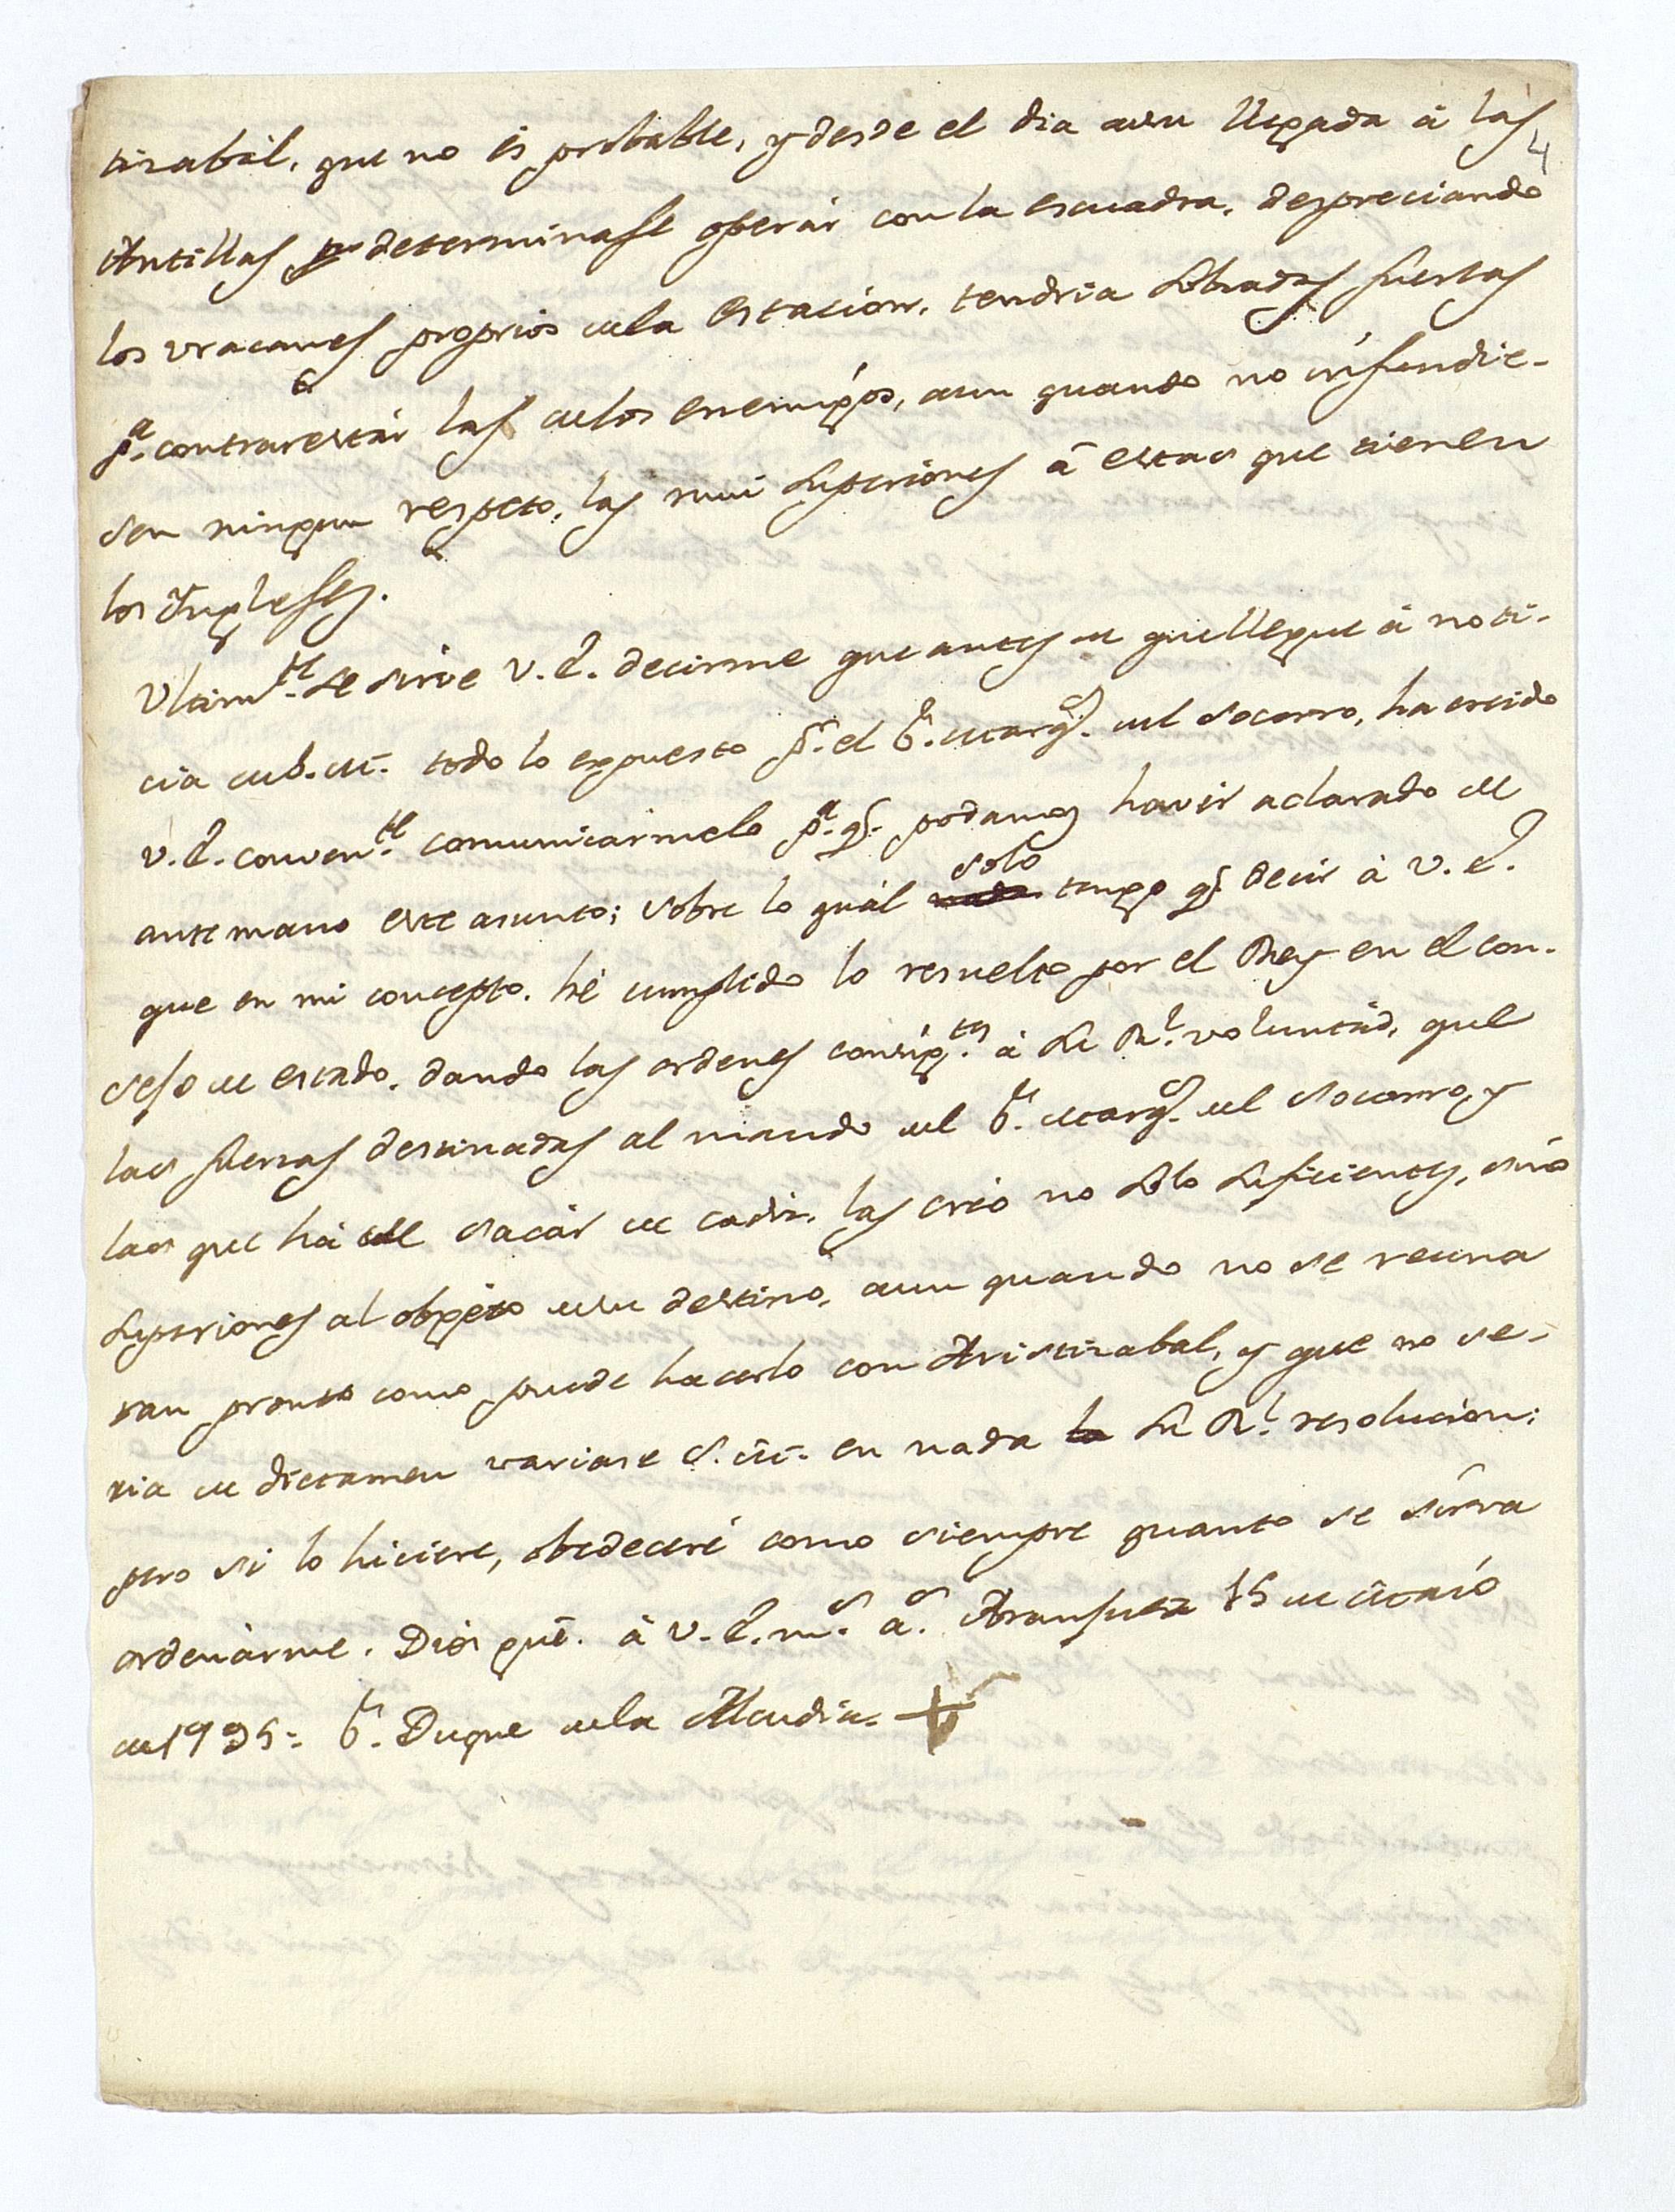 tizabál, que no és probable, y desde el dia de su llegada á las
4
Antillas determinase operár con la escuadra, despreciando
los uracanes proprios de la estacion, tendria sobradas fuerzas
pª. contrarestár las de los enemigos, aun quando no infundie-
sen ningun respeto, las mui superiores á estas que tienen
los Ingleses.
Ultimte. se sirve V.E. decirme que antes de que llegue á noti-
cia de S.M. todo lo expuesto pr. el Sr. Marqs. del Socorro, ha creido
V.E. convente. comunicarmelo pª. qe. podamos havér aclarado de
solo
antemano este asunto; sobre lo quál nada tengo qe. decir á V.E.
que en mi concepto, hé cumplido lo resuelto por el Rey en el con-
sejo de estado, dando las ordenes consigtes. á su Rl. voluntád, que
las fuerzas destinadas al mando del Sr. Marqs. del Socorro, y
las que há de sacár de Cadiz, las créo no solo suficientes, sinó
superiores al objéto de su destino, aun quando no se reuna
tan pronto como puede hacerlo con Aristizabal, y que no se-
ria de dictamen variase S.M. en nada la su Rl. resolucion:
pero si lo hiciere, obedeceré como siempre quanto se sirva
ordenárme. Dios gue. á V.E. ms. as. Aranjuez 15 de Maio
de 1795= Sr. Duque de la Alcudia.